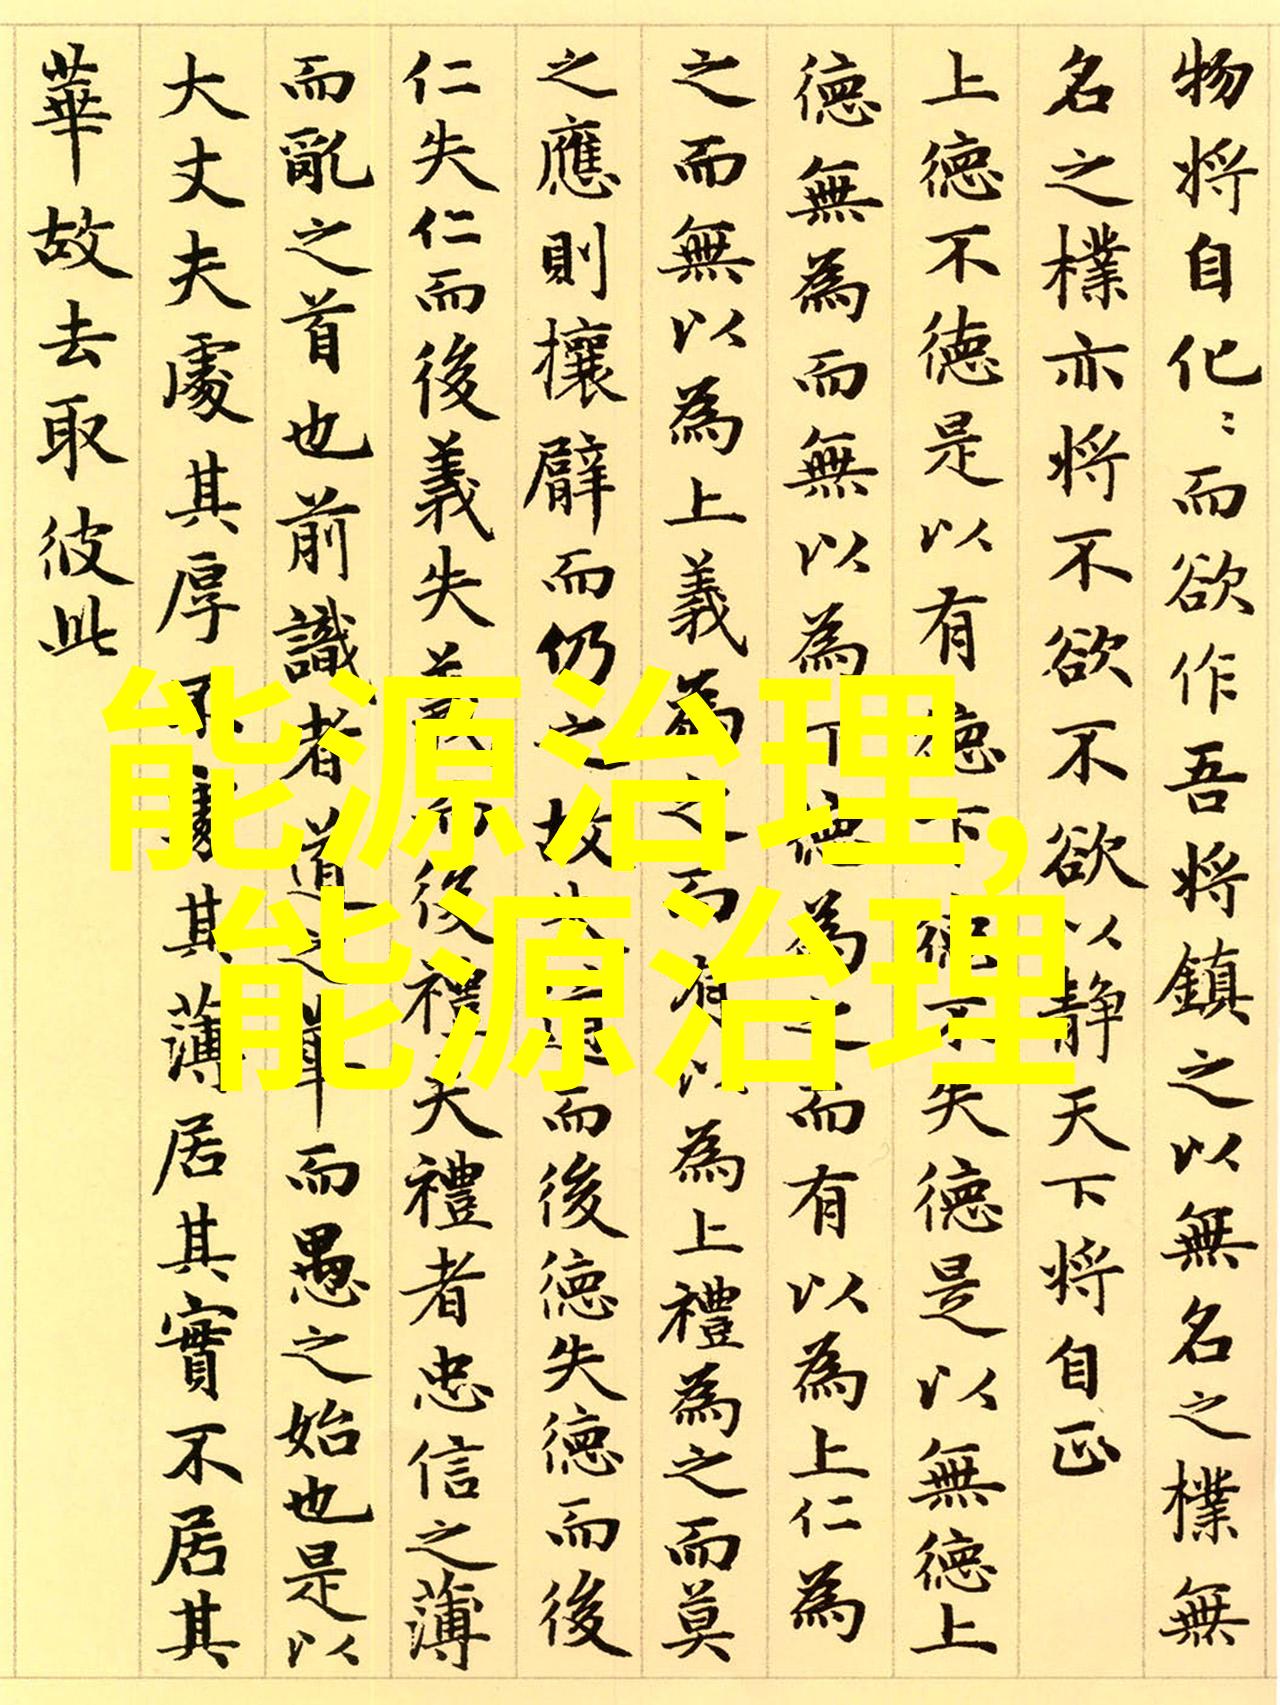 物将自化：而欲作吾将鎮之以無名之樸無
名之樸亦将不欲不欲以静天下将自正
上德不德是以有德下德不失德是以無德上
德無為而無以為下德為之而有以為上仁為
之而無以為上義為之而有以為上禮為之而莫
之應則攘臂而仍之故失道而後德失德而後
仁失仁而後義失義而後禮夫禮者忠信之薄
而亂之首也前識者道之華而愚之始也是以
大丈夫處其厚不處其薄居其實不居其
華故去取彼此
能源治理,
能源治理